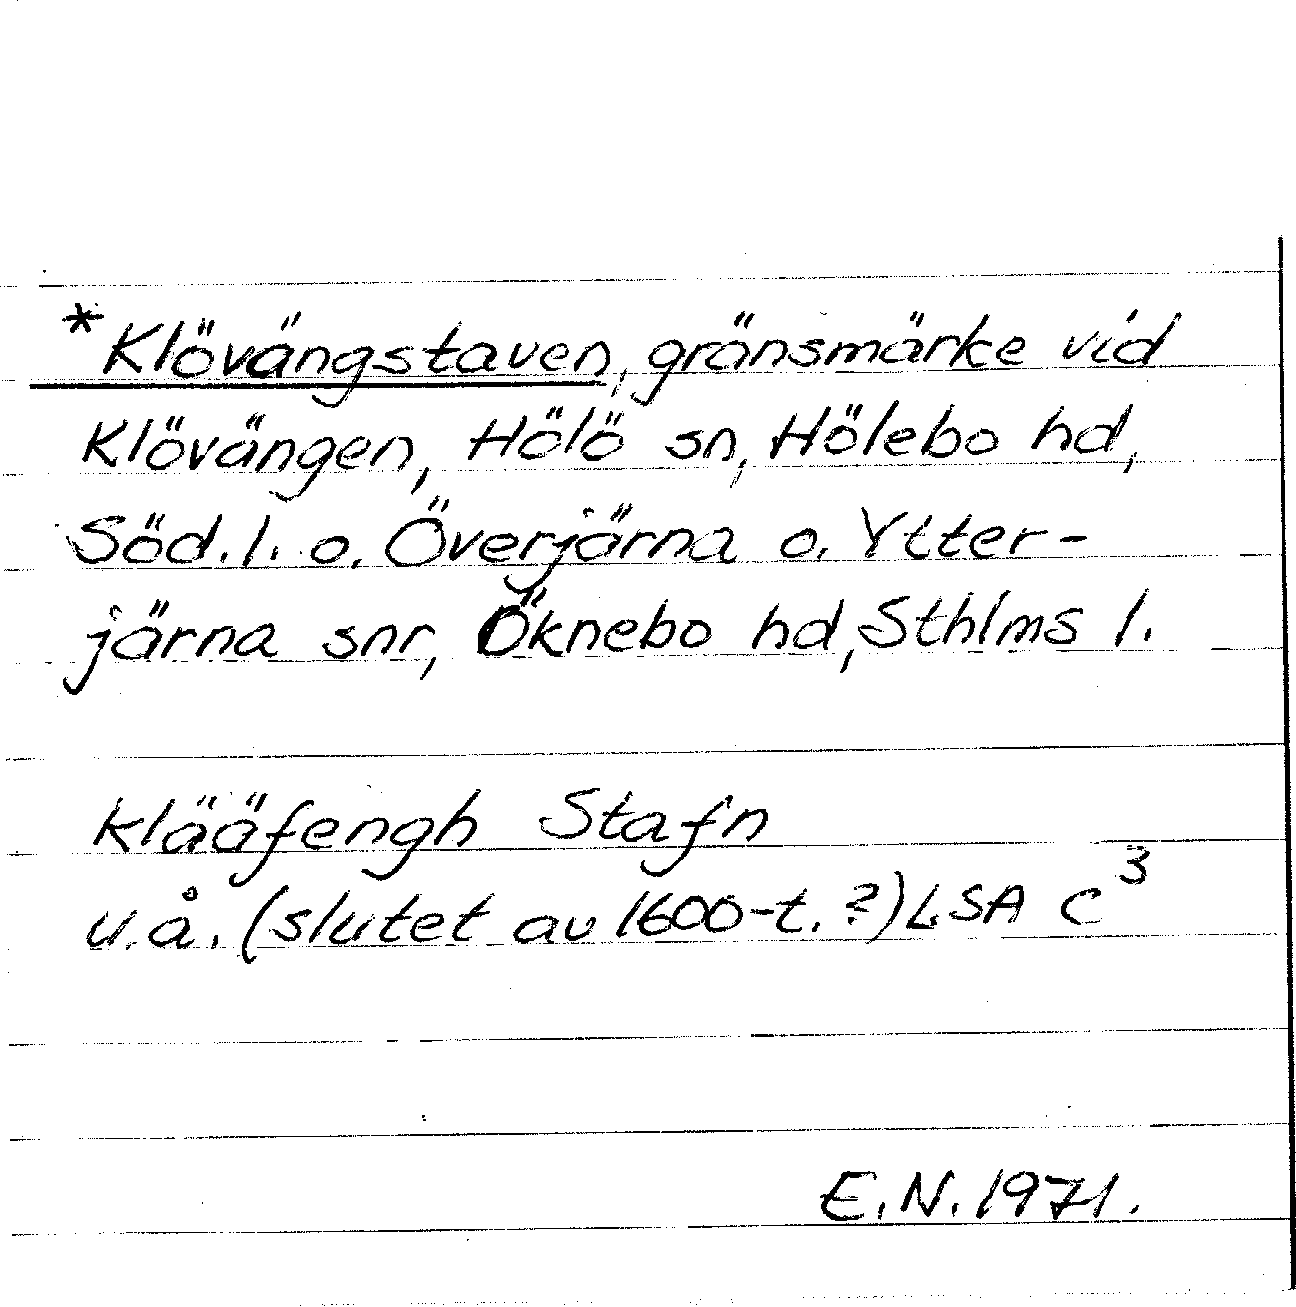 *Klövängstaven, gränsmärke vid
Klövängen, Hölö sn, Hölebo hd,
Söd.l. o. Överjärna o. Ytter-
järna snr, Öknebo hd, Sthlms l.
klääfengh Stafn
u.å. (slutet av 1600-t. ?) LSA C³
E.N. 1971.